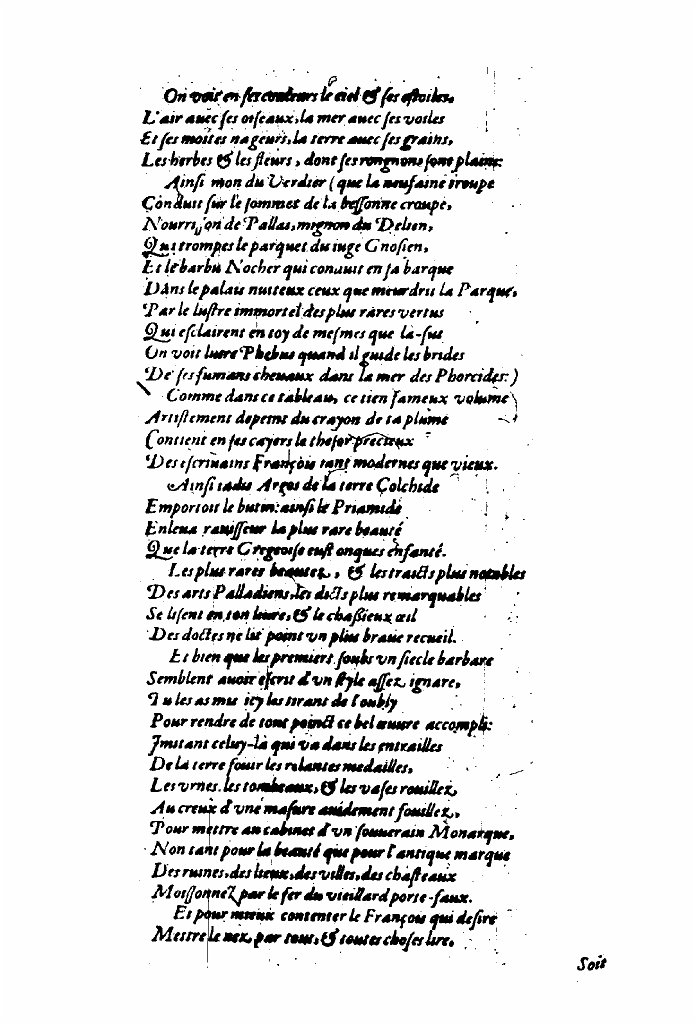 On voit en ses couleurs le ciel & ses estoiles,
L'air auec ses oiseaux, la mer auec ses voiles
Et ses moites nageurs, la terre auec ses grains,
Les herbes & les fleurs, dont ses rongnons sont plains:
Ainsi mon du Verdier (que la neufaine troupe
Conduit sur le sommet de la bessonne croupe,
Nourriçon de Pallas, mignon du Delien,
Qui trompes le parquet du iuge Gnosien,
Et le barbu Nocher qui conduit en sa barque
Dans le palais nuiteux ceux que meurdrit la Parque,
Par le lustre immortel des plus rares vertus
Qui esclairent en toy de mesmes que là-sus
On voit luire Phebus quand il guide les brides
De ses fumans cheuaux dans la mer des Phorcides:)
Comme dans ce tableau, ce tien fameux volume
Artistement depeint du crayon de ta plume
Contient en ses cayers le thesor precieux
Des escriuains François tant modernes que vieux.
Ainsi iadis Argos de la terre Colchide
Emportoit le butin: ainsi le Priamide
Enleua rauisseur la plus rare beauté
Que la terre Gregeoise eust onques enfanté.
Les plus rares beautez, & les traicts plus notables
Des arts Palladiens, les dicts plus remarquables
Se lisent en ton liure, & le chassieux œil
Des doctes ne lit point vn plus braue recueil.
Et bien que les premiers soubs vn siecle barbare
Semblent auoir escrit d'vn style assez ignare,
Tu les as mis icy les tirant de l'oubly
Pour rendre de tout poinct ce bel œuure accompli:
Imitant celuy-là qui va dans les entrailles
De la terre fouir les relantes medailles,
Les vrnes, les tombeaux, & les vases rouillez,
Au creux d'vne masure auidement fouillez,
Pour mettre au cabinet d'vn souuerain Monarque,
Non tant pour la beauté que pour l'antique marque
Des ruines, des lieux, des villes, des chasteaux
Moissonnez par le fer du vieillard porte-faux.
Et pour mieux contenter le François qui desire
Mettre le nez par tout, & toutes choses lire,
Soit